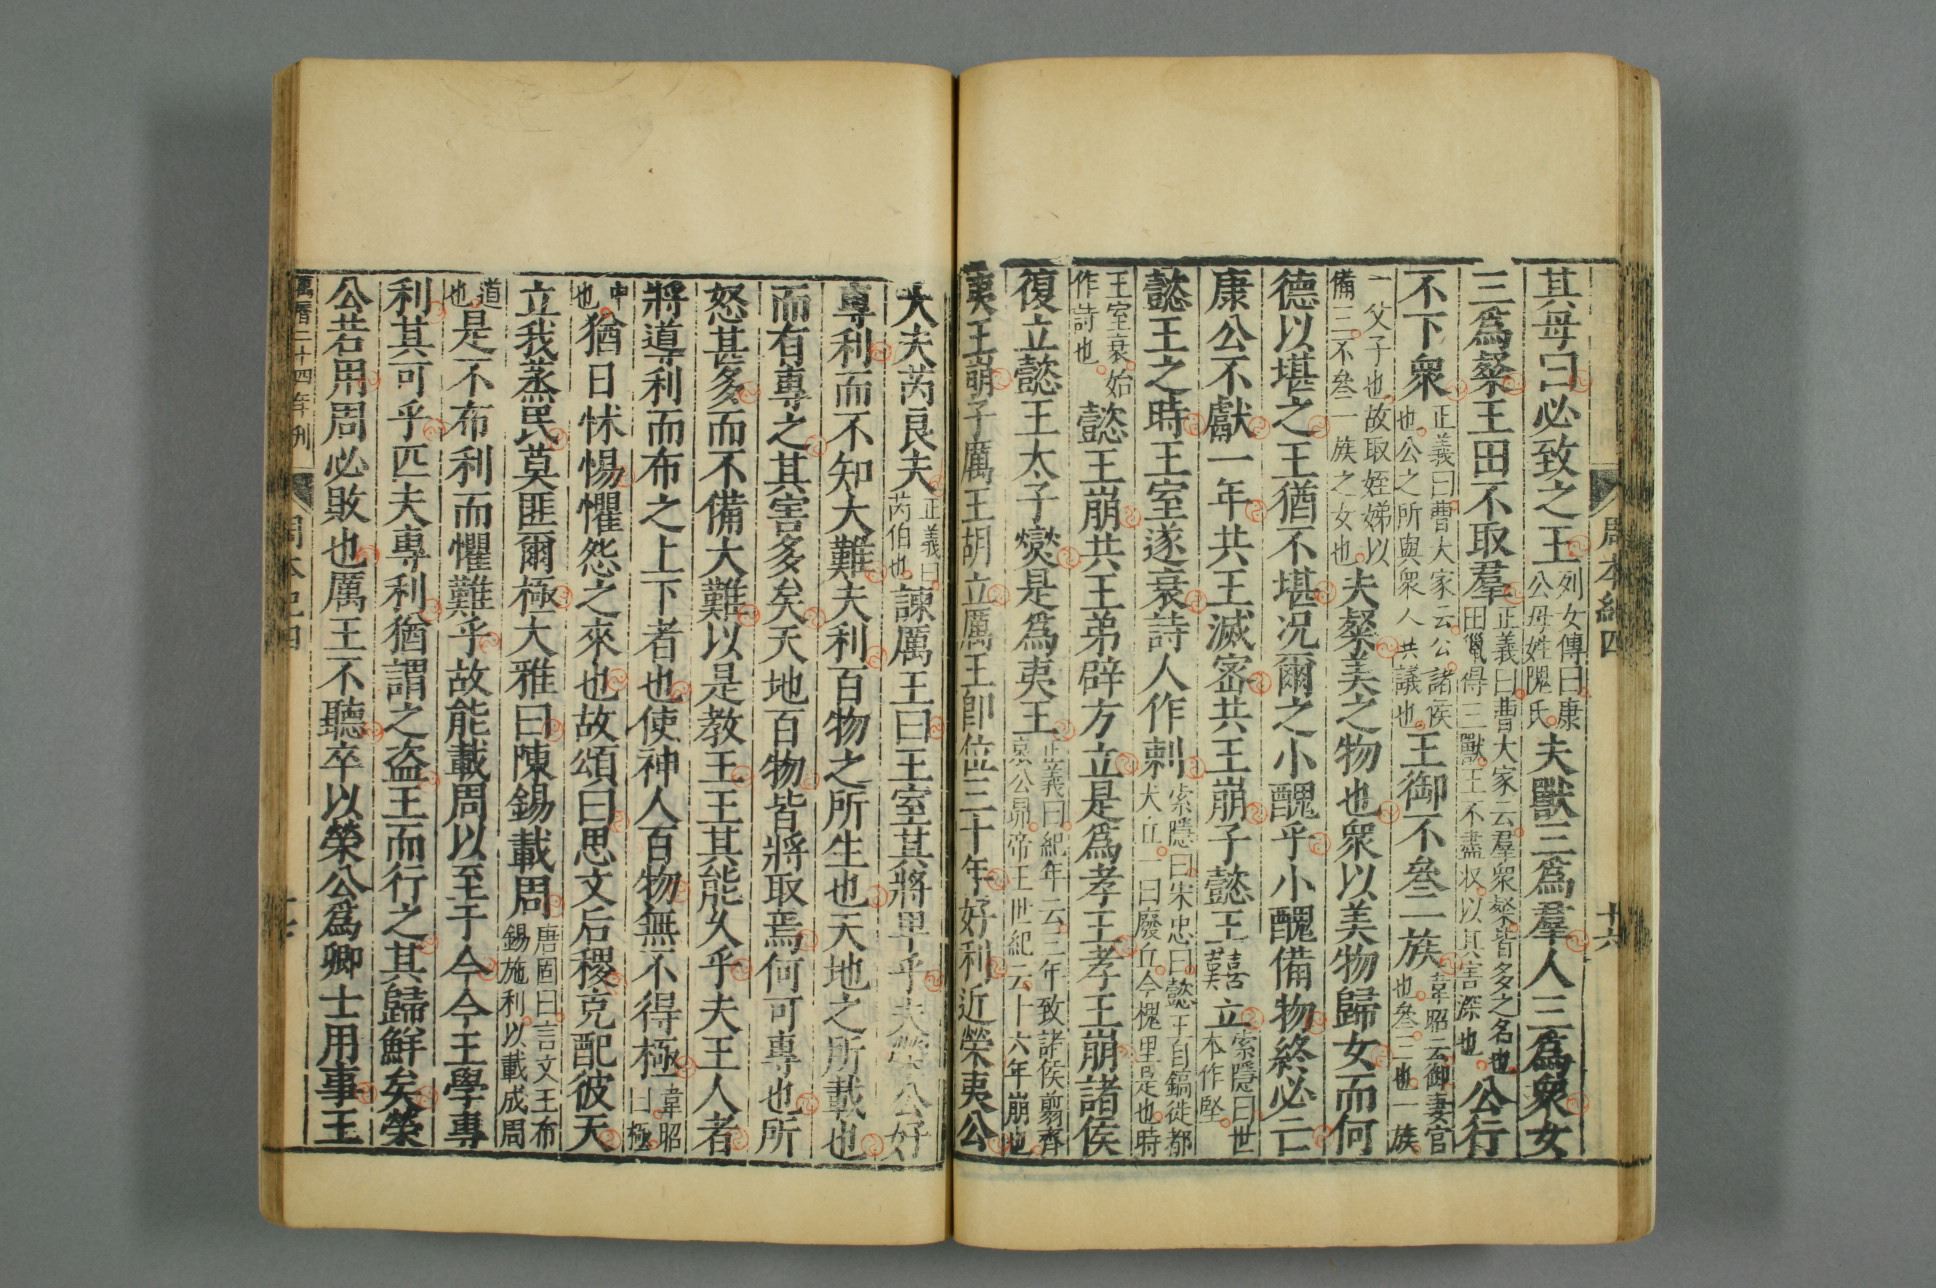 周本紀四
十六
其母曰必致之王列女傳曰康公母姓隗氏夫獸三爲羣人三爲衆女
三爲粲王田不取羣正義曰曹大家云羣衆粲皆多之名也田獵得三獸王不盡收以其害深也公行
不下衆正義曰曹大家云公諸侯也公之所與衆人共議也王御不叅一族韋昭云御妻官也叅三也一族
一父子也故取姪娣以備三不叅一族之女也夫粲美之物也衆以美物歸女而何
德以堪之王猶不堪况爾之小醜乎小醜備物終必亡
康公不獻一年共王滅密共王崩子懿王囏立索隱曰世本作堅
懿王之時王室遂衰詩人作刺索隱曰宋忠曰懿王自鎬徙都犬丘一曰廢丘今槐里是也時
王室衰始作詩也懿王崩共王弟辟方立是爲孝王孝王崩諸侯
復立懿王太子燮是爲夷王正義曰紀年云三年致諸侯翦齊哀公昴帝王世紀云十六年崩也
夷王崩子厲王胡立厲王卽位三十年好利近榮夷公
大夫芮良夫正義曰芮伯也諫厲王曰王室其將卑乎夫榮公好
專利而不知大難夫利百物之所生也天地之所載也
而有專之其害多矣天地百物皆將取焉何可專也所
怒甚多而不備大難以是教王王其能久乎夫王人者
將導利而布之上下者也使神人百物無不得極韋昭曰極
中也猶日怵惕懼怨之來也故頌曰思文后稷克配彼天
立我蒸民莫匪爾極大雅曰陳錫載周唐固曰言文王布錫施利以載成周
道也是不布利而懼難乎故能載周以至于今今王學專
利其可乎匹夫專利猶謂之盗王而行之其歸鮮矣榮
公若用周必敗也厲王不聽卒以榮公爲卿士用事王
萬曆二十四年刊
周本紀四
十七